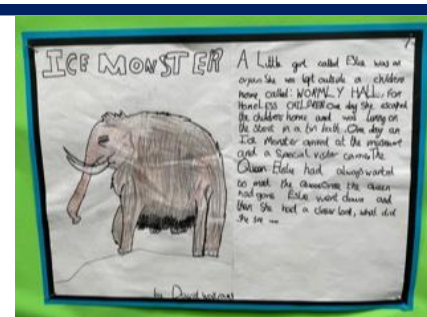 ICE MONSTER
A Little girl called Elsie was an
orpan She was left outside a childrens
home called: WORMLY HALL, For
HomeLess CHILDREN One day She escaped
the childrens home and was living on
the street in a tin bath. One day an
Ice Monster arrived at the museum
and a Special visitor came The
Queen Elsie had always wanted
to meet the Queen Once the Queen
had gone Elsie went down and
then She had a closer look, what did
She see ...
by David